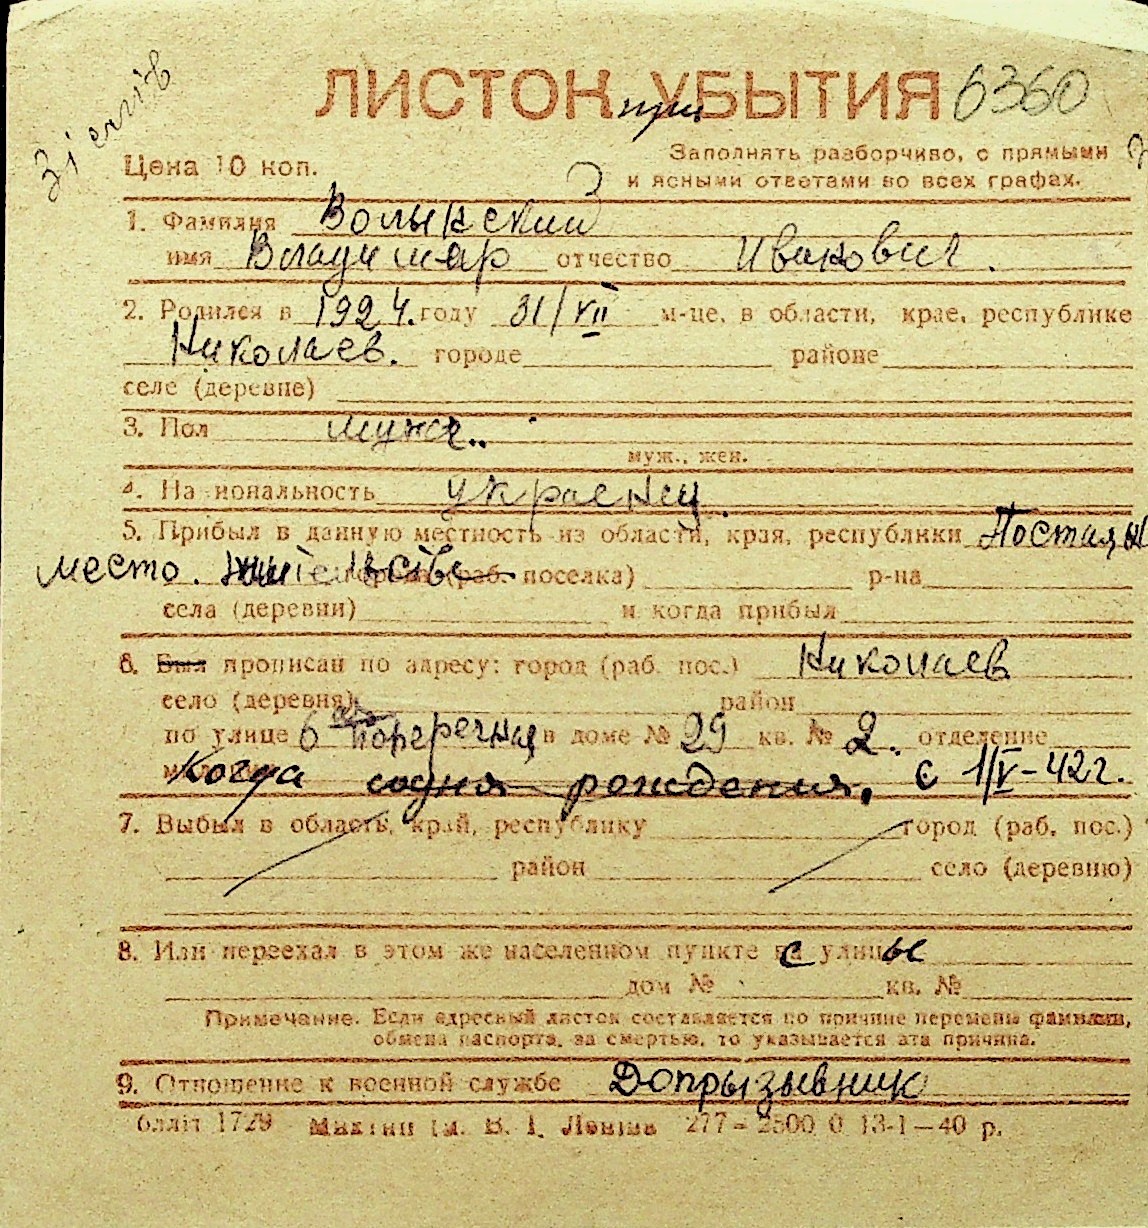 ЛИСТОК УБЫТИЯ 6360
при
Цена 10 коп.
Заполнять разборчиво, с прямыми
и ясными ответами во всех графах.
1. Фамилия Волынский
имя Владимир отчество Иванович.
2. Родился в 1924. году 31/VII м-це, в области, крае, республике
Николаев. городе районе
селе (деревне)
3. Пол мужс..
муж., жен.
4. Национальность украенец.
5. Прибыл в данную местность из области, края, республики Постаян
место. жительства (раб. поселка) р-на
села (деревни) и когда прибыл
6. Был прописан по адресу: город (раб. пос.) Николаев
село (деревня) район
по улице 6 Поперечная в доме № 29 кв. № 2. отделение
Когда содня рождения. с 1/V-42г.
7. Выбыл в область, край, республику город (раб. пос.)
район село (деревню)
8. Или переехал в этом же населенном пункте с улицы
дом № кв. №
Примечание. Если адресный листок составляется по причине перемены фамилии,
обмена паспорта, за смертью, то указывается эта причина.
9. Отношение к военной службе Допрызывник
1729 В. І. Леніна 277 - 2500 0 13-1-40 р.